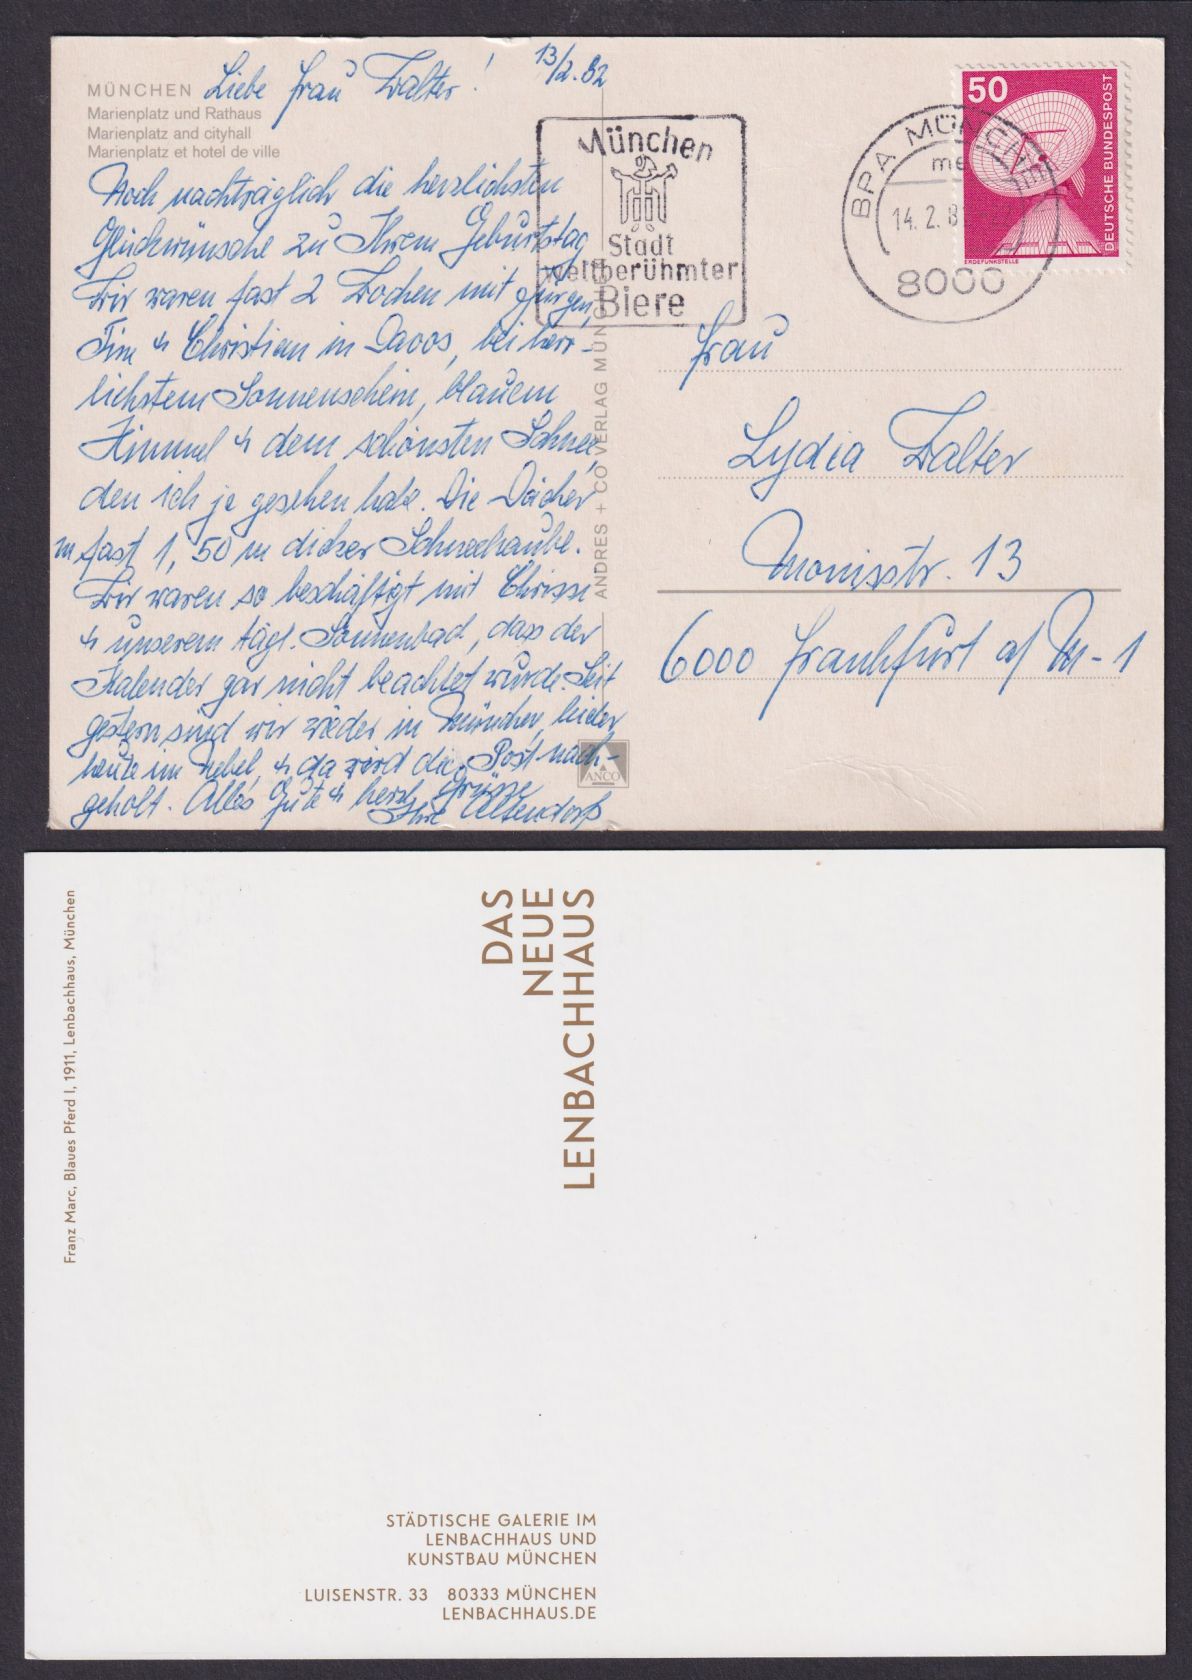 MÜNCHEN
Marienplatz und Rathaus
Marienplatz and cityhall
Marienplatz et hotel de ville
13/2.82
Liebe Frau Walter!
Noch nachträglich die herzlichsten
Glückwünsche zu Ihrem Geburtstag
Wir waren fast 2 Wochen mit Jürgen,
Tim & Christian in Davos, bei herr-
lichstem Sonnenschein, blauem
Himmel & dem schönsten Schnee,
den ich je gesehen habe. Die Dächer
m fast 1,50 m dicker Schneehaube.
Wir waren so beschäftigt mit Chrissi
& unserem tägl. Sonnenbad, dass der
Kalender gar nicht beachtet wurde. Seit
gestern sind wir wieder in München, leider
heute im Nebel, & da wird die Post nach-
geholt. Alles Gute & herzl. Grüsse
Ihre
ANDRES + CO VERLAG MÜNCHEN
ANCO
München
Stadt
weltberühmter
Biere
BPA MÜNCHEN
me
14.2.8
8000
50
DEUTSCHE BUNDESPOST
ERDEFUNKSTELLE
Frau
Lydia Walter
13
6000 Frankfurt a/M-1
Franz Marc, Blaues Pferd I, 1911, Lenbachhaus, München
DAS
NEUE
LENBACHHAUS
STÄDTISCHE GALERIE IM
LENBACHHAUS UND
KUNSTBAU MÜNCHEN
LUISENSTR. 33 80333 MÜNCHEN
LENBACHHAUS.DE